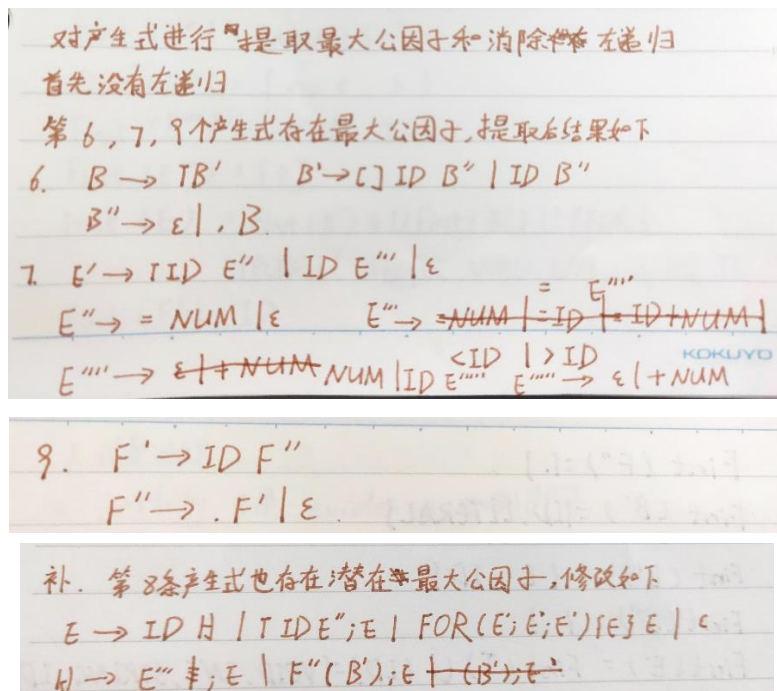 对产生式进行提取最大公因子和消除左递归
首先没有左递归
第6,7,9个产生式存在最大公因子,提取后结果如下
6. B → TB' B' → [] ID B'' | ID B''
B'' → ε | , B
7. E' → TID E'' | ID E''' | ε
E'' → = NUM | ε E''' → = E'''' | <ID | >ID
KOKUYO
E'''' → NUM | ID E''''' E''''' → ε | +NUM
9. F' → ID F''
F'' → . F' | ε
补. 第8条产生式也存在潜在最大公因子,修改如下
E → ID H | T IDE'';E | FOR(E';E';E'){E}E | ε
H → E''' ;E | F''(B');E